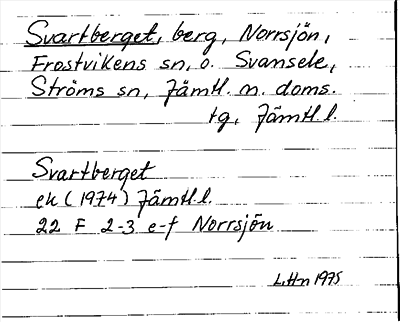 Svartberget, berg, Norrsjön,
Frostvikens sn, o. Svansele,
Ströms sn, Jämtl. n. doms.
tg, Jämtl.l.
Svartberget
ek (1974) Jämtl.l.
22 F 2-3 e-f Norrsjön
L.Hn 1975